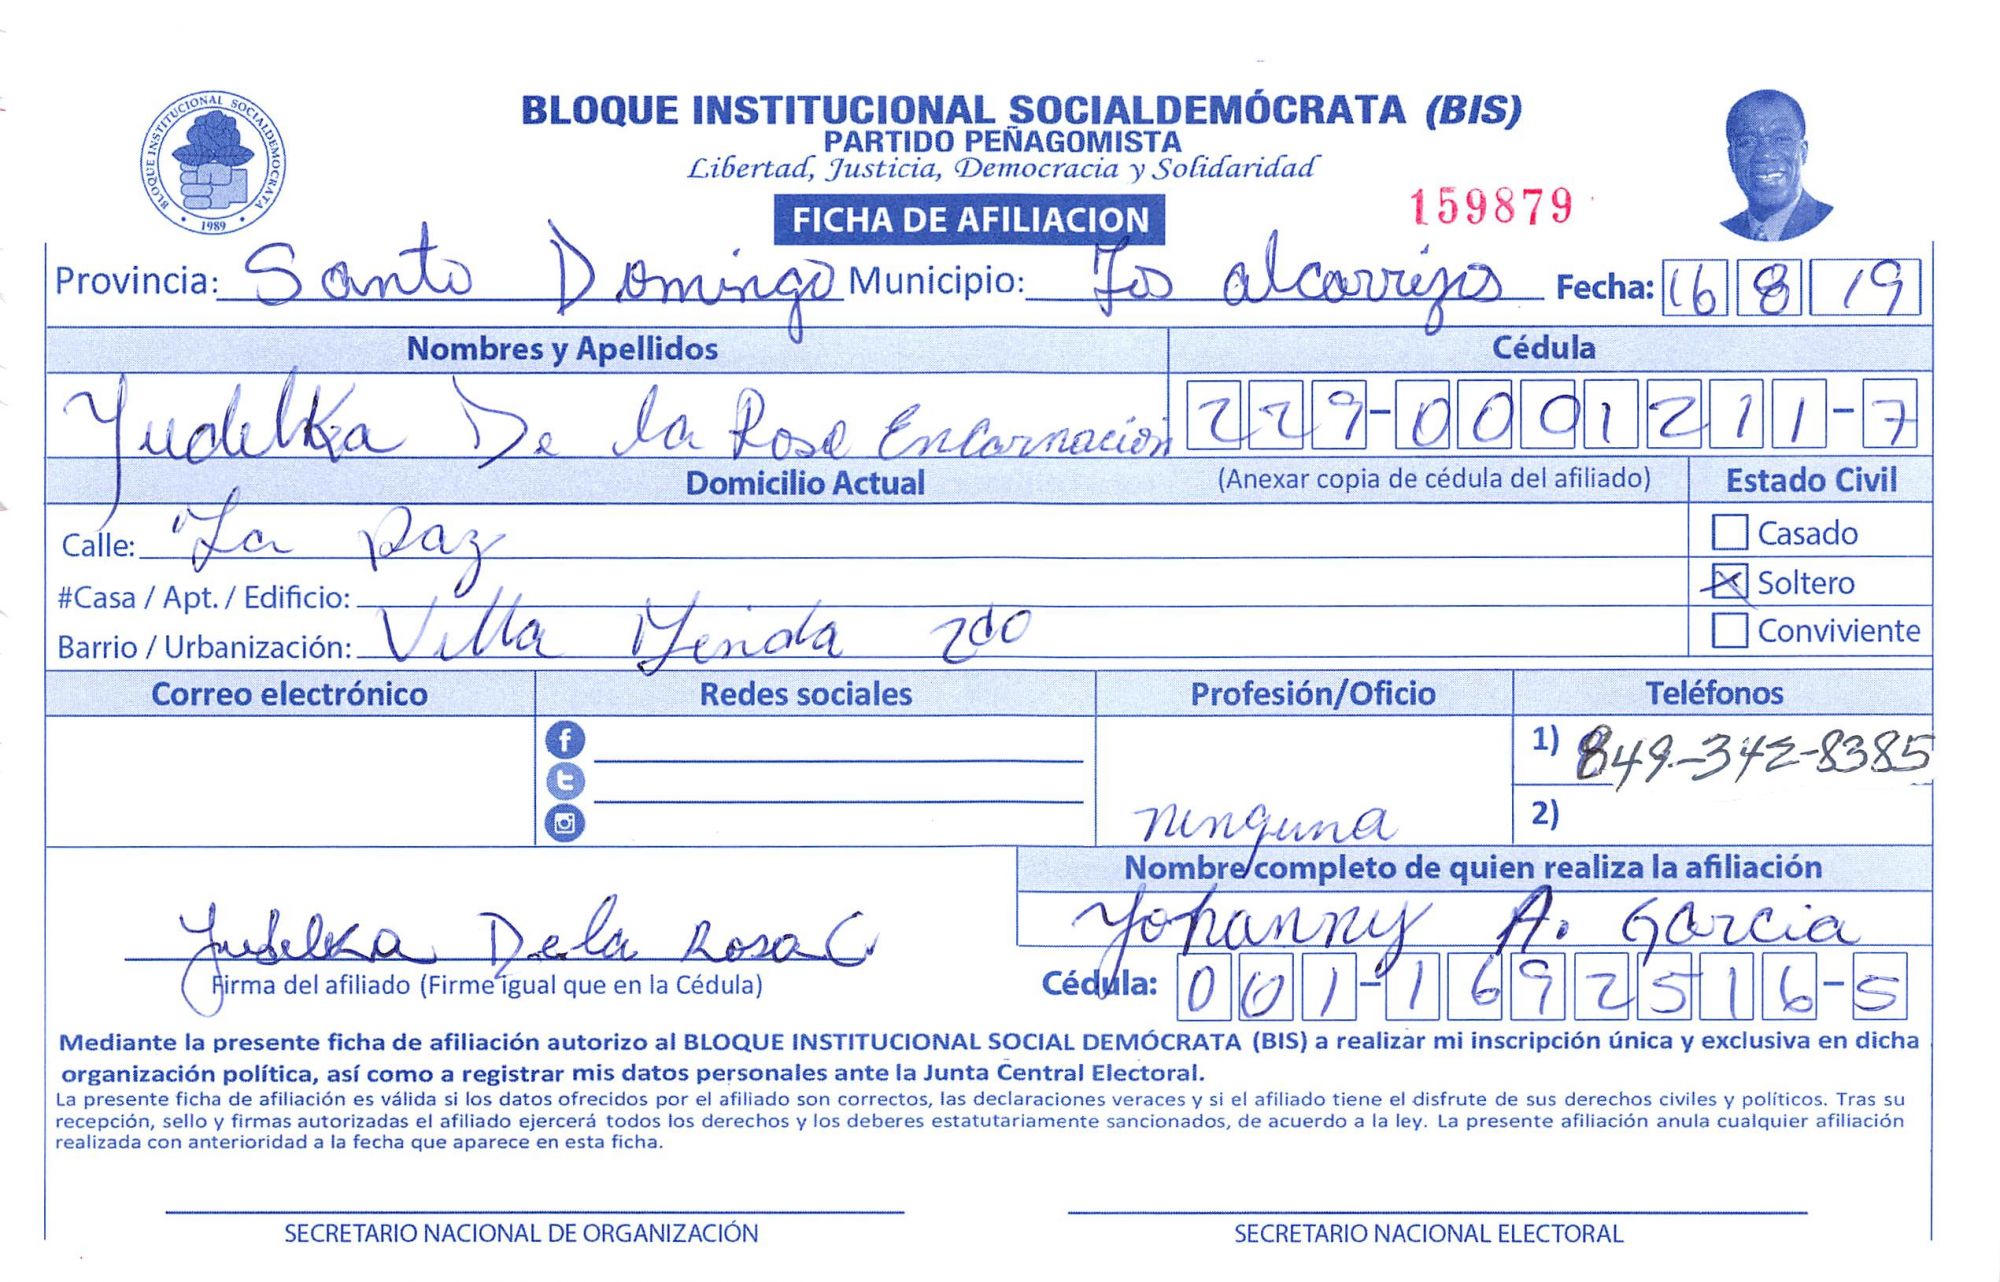 BLOQUE INSTITUCIONAL SOCIALDEMOCRATA
1989
BLOQUE INSTITUCIONAL SOCIALDEMÓCRATA (BIS)
PARTIDO PEÑAGOMISTA
Libertad, Justicia, Democracia y Solidaridad
FICHA DE AFILIACION
159879
Provincia: Santo Domingo Municipio: Los alcarrizos Fecha: 16 8 19
Nombres y Apellidos Cédula
Yudelka De la Rosa Encarnación 229-0001211-7
Domicilio Actual (Anexar copia de cédula del afiliado) Estado Civil
Calle: La paz Casado
#Casa / Apt. / Edificio: Soltero
Barrio / Urbanización: Villa Linda 2do Conviviente
Correo electrónico Redes sociales Profesión/Oficio Teléfonos
1) 849-342-8385
ninguna 2)
Nombre completo de quien realiza la afiliación
Yudelka De la Rosa Yohanny A. Garcia
Firma del afiliado (Firme igual que en la Cédula) Cédula: 001-1692516-5
Mediante la presente ficha de afiliación autorizo al BLOQUE INSTITUCIONAL SOCIAL DEMÓCRATA (BIS) a realizar mi inscripción única y exclusiva en dicha
organización política, así como a registrar mis datos personales ante la Junta Central Electoral.
La presente ficha de afiliación es válida si los datos ofrecidos por el afiliado son correctos, las declaraciones veraces y si el afiliado tiene el disfrute de sus derechos civiles y políticos. Tras su
recepción, sello y firmas autorizadas el afiliado ejercerá todos los derechos y los deberes estatutariamente sancionados, de acuerdo a la ley. La presente afiliación anula cualquier afiliación
realizada con anterioridad a la fecha que aparece en esta ficha.
SECRETARIO NACIONAL DE ORGANIZACIÓN SECRETARIO NACIONAL ELECTORAL